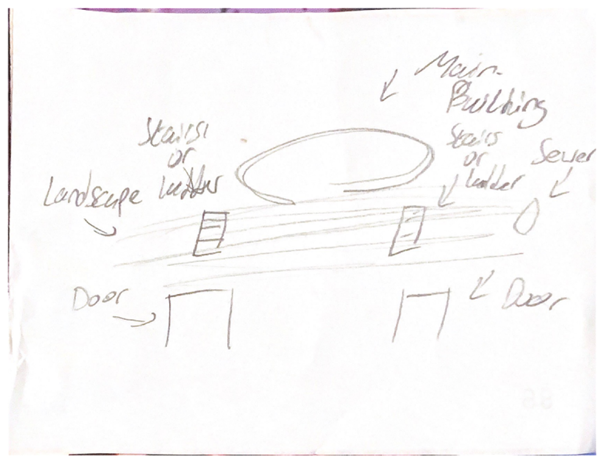 Main
Building
Stairs
or
ladder
Stairs
or
ladder
Sewer
Landscape
Door
Door